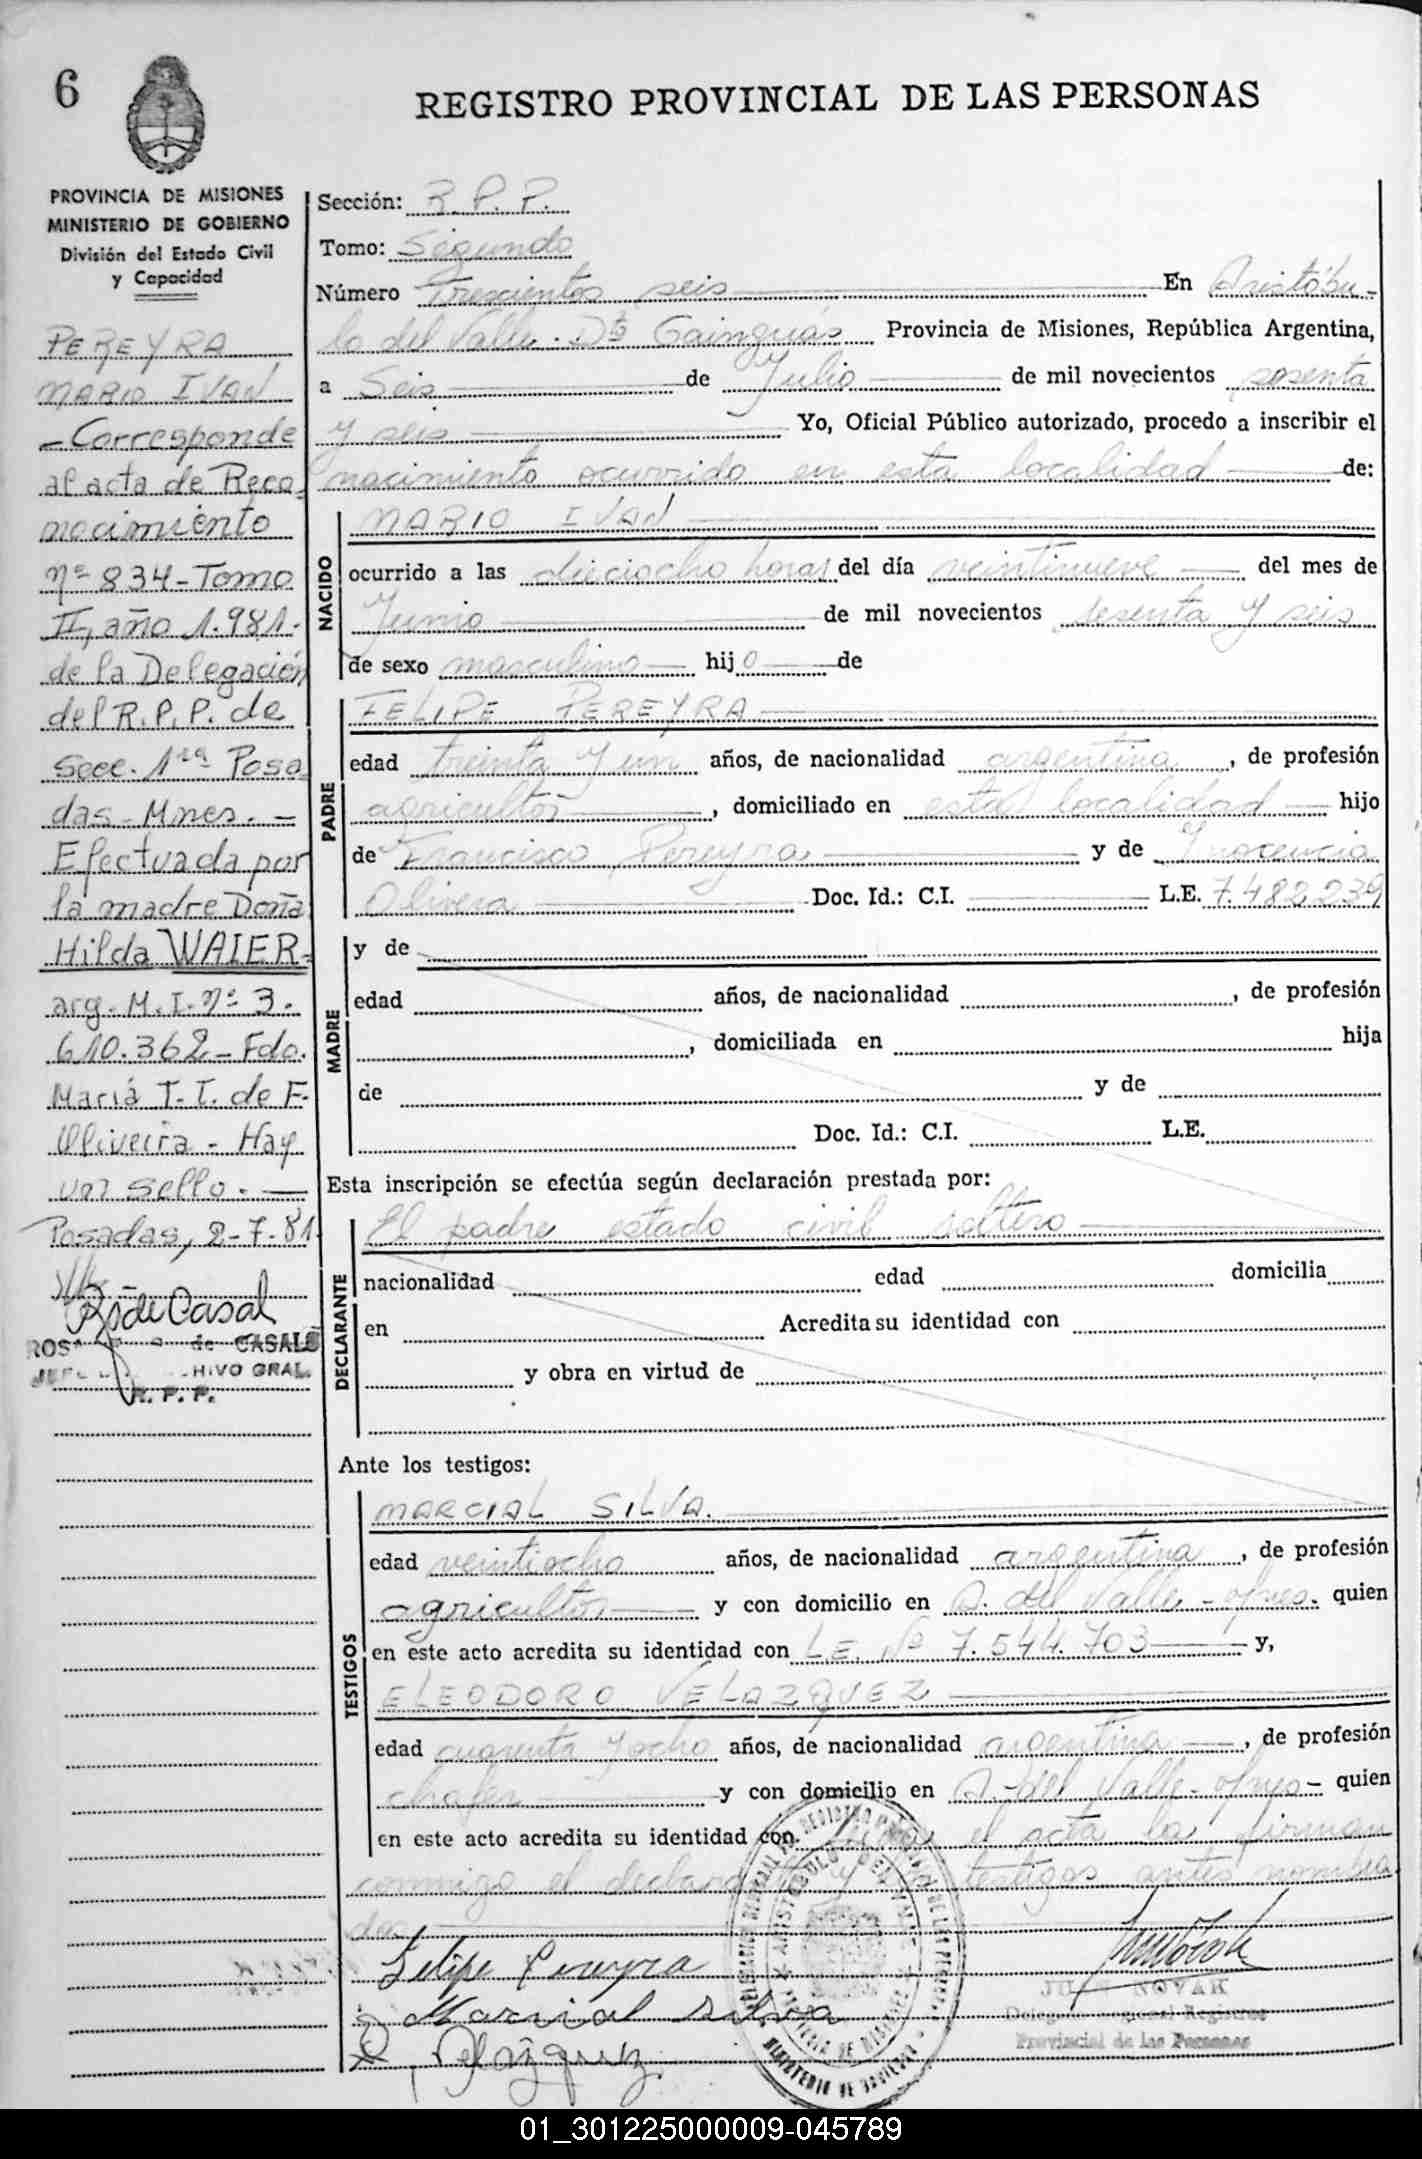 6
REGISTRO PROVINCIAL DE LAS PERSONAS
PROVINCIA DE MISIONES
MINISTERIO DE GOBIERNO
División del Estado Civil
y Capacidad
PEREYRA
MARIO IVAN
- Corresponde
al acta de Reco-
nocimiento
nº 834 - Tomo
II, año 1.981.
de la Delegación
del R.P.P. de
Secc. 1ra Posa
das - Mnes. -
Efectuada por
la madre Doña
Hilda WAIER-
arg. M.I. nº 3.
610.362 - Fdo.
María T. T. de F.
Oliveira - Hay
un sello. -
Posadas, 2-7-81.
R de Casal
ROS de CASALE
HIVO GRAL.
R. P. P.
Sección: R. P. P.
Tomo: Segundo
Número Trescientos seis En Aristóbu-
lo del Valle. Dto Cainguás Provincia de Misiones, República Argentina,
a Seis de Julio de mil novecientos sesenta
y seis Yo, Oficial Público autorizado, procedo a inscribir el
nacimiento ocurrido en esta localidad de:
NACIDO
MARIO IVAN
ocurrido a las dieciocho horas del día veintinueve del mes de
Junio de mil novecientos sesenta y seis
de sexo masculino hijo de
PADRE
FELIPE PEREYRA
edad treinta y un años, de nacionalidad argentina, de profesión
agricultor, domiciliado en esta localidad hijo
de Francisco Pereyra y de Inocencia
Olivera Doc. Id.: C.I. L.E. 7.482.239
MADRE
y de
edad años, de nacionalidad , de profesión
, domiciliada en hija
de y de
Doc. Id.: C.I. L.E.
Esta inscripción se efectúa según declaración prestada por:
DECLARANTE
El padre estado civil soltero
nacionalidad edad domicilia
en Acredita su identidad con
y obra en virtud de
Ante los testigos:
TESTIGOS
MARCIAL SILVA.
edad veintiocho años, de nacionalidad argentina, de profesión
agricultor y con domicilio en A. del Valle - quien
en este acto acredita su identidad con L.E. Nº 7.544.703 y,
ELEODORO VELAZQUEZ
edad cuarenta y ocho años, de nacionalidad argentina, de profesión
chofer y con domicilio en A. del Valle - quien
en este acto acredita su identidad con. el acta la firman
conmigo el declarante y los testigos antes nombra
dos
Felipe Pereyra
Marcial Silva
Velázquez
ARISTOBULO DEL VALLE
PROVINCIA DE MISIONES
MINISTERIO DE GOBIERNO
NOVAK
Delegado Regional Registro
Provincial de las Personas
01_301225000009-045789